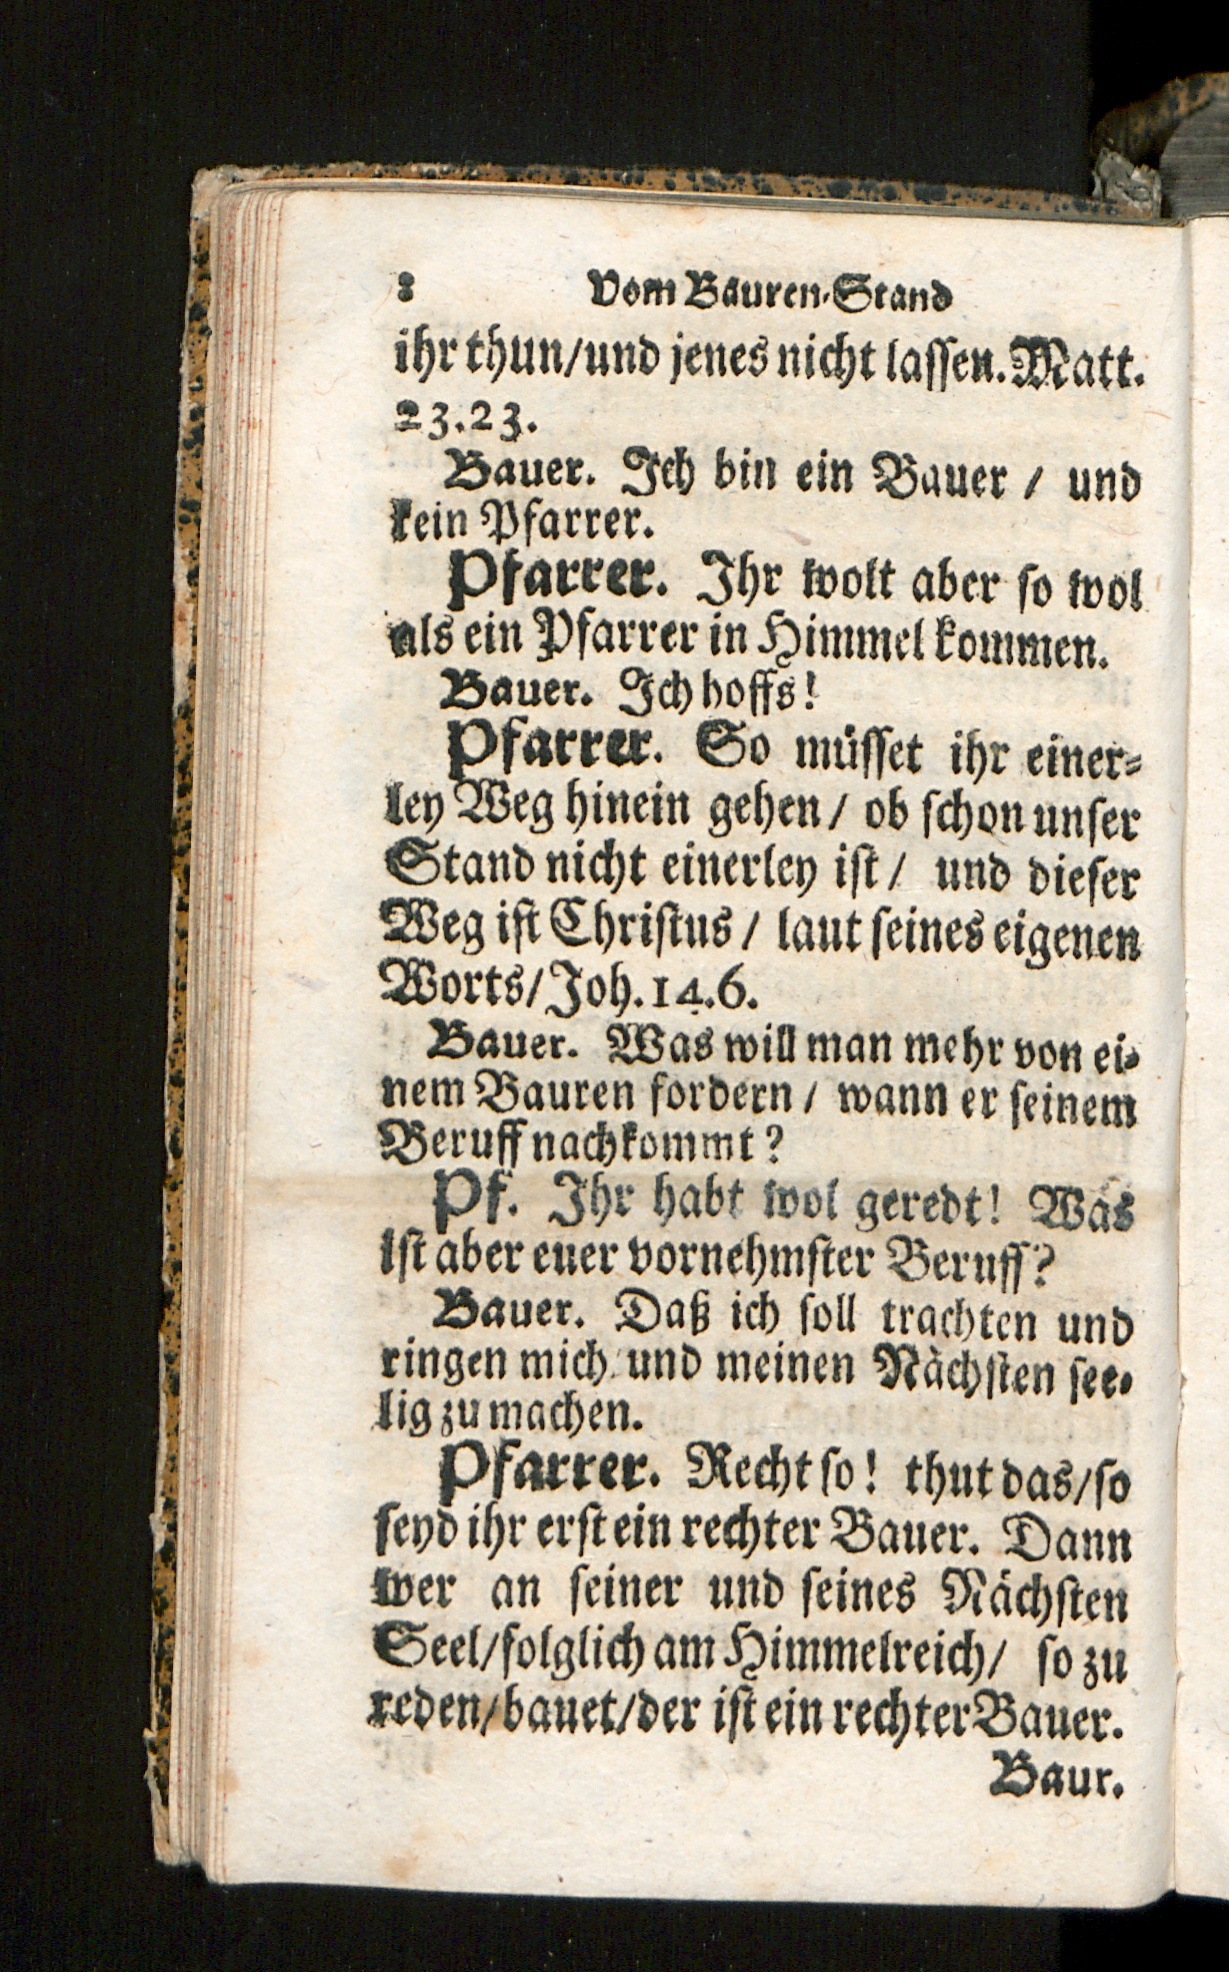 8 Vom Bauren-Stand
ihr thun/und jenes nicht lassen. Matt.
23.23.
Bauer. Ich bin ein Bauer / und
kein Pfarrer.
Pfarrer. Ihr wolt aber so wol
als ein Pfarrer in Himmel kommen.
Bauer. Ich hoffs!
Pfarrer. So müsset ihr einer-
ley Weg hinein gehen / ob schon unser
Stand nicht einerley ist / und dieser
Weg ist Christus / laut seines eigenen
Worts/Joh.14.6.
Bauer. Was will man mehr von ei-
nem Bauren fordern / wann er seinem
Beruff nachkommt?
Pf. Ihr habt wol geredt! Was
ist aber euer vornehmster Beruff?
Bauer. Daß ich soll trachten und
ringen mich und meinen Nächsten see-
lig zu machen.
Pfarrer. Recht so! thut das/so
seyd ihr erst ein rechter Bauer. Dann
wer an seiner und seines Nächsten
Seel/folglich am Himmelreich/ so zu
reden/bauet/der ist ein rechter Bauer.
Baur.